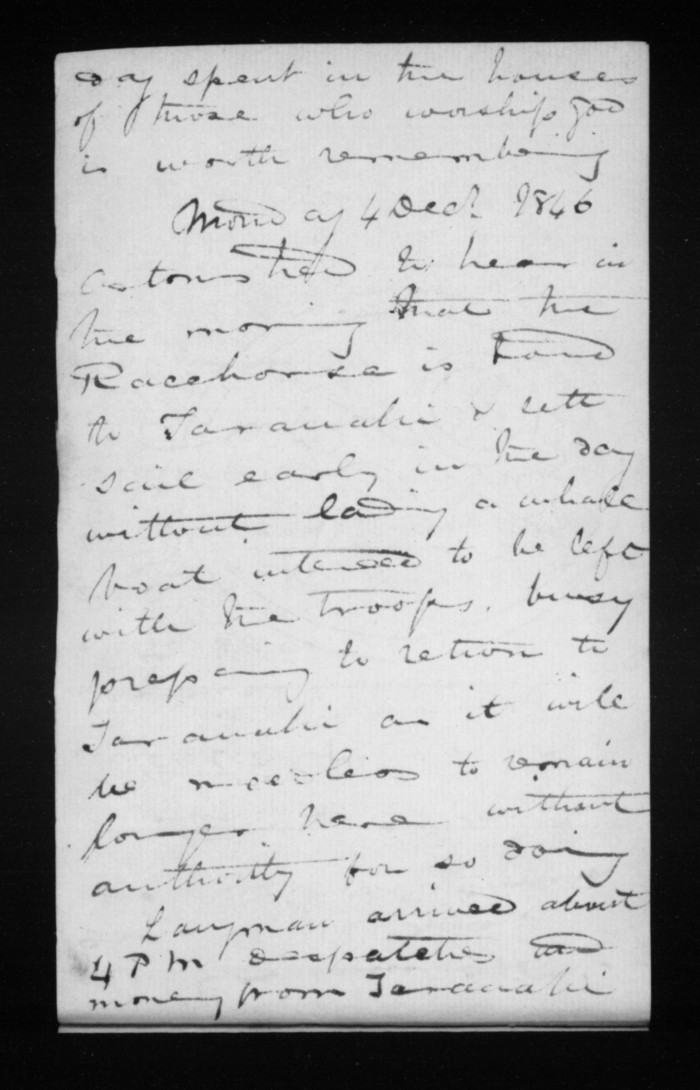 day spent in the houses
of those who worship God
is worth remembering
Monday 4 Dec 1846
astonished to hear in
the morning that the
Racehorse is bound
to Taranaki & sett
sail early in the day
without landing a whale
boat intended to be left
with the troops. busy
preparing to return to
Taranaki as it will
be needless to remain
longer here without
authority for so doing
Langman arrived about
4 PM despatches and
money from Taranaki